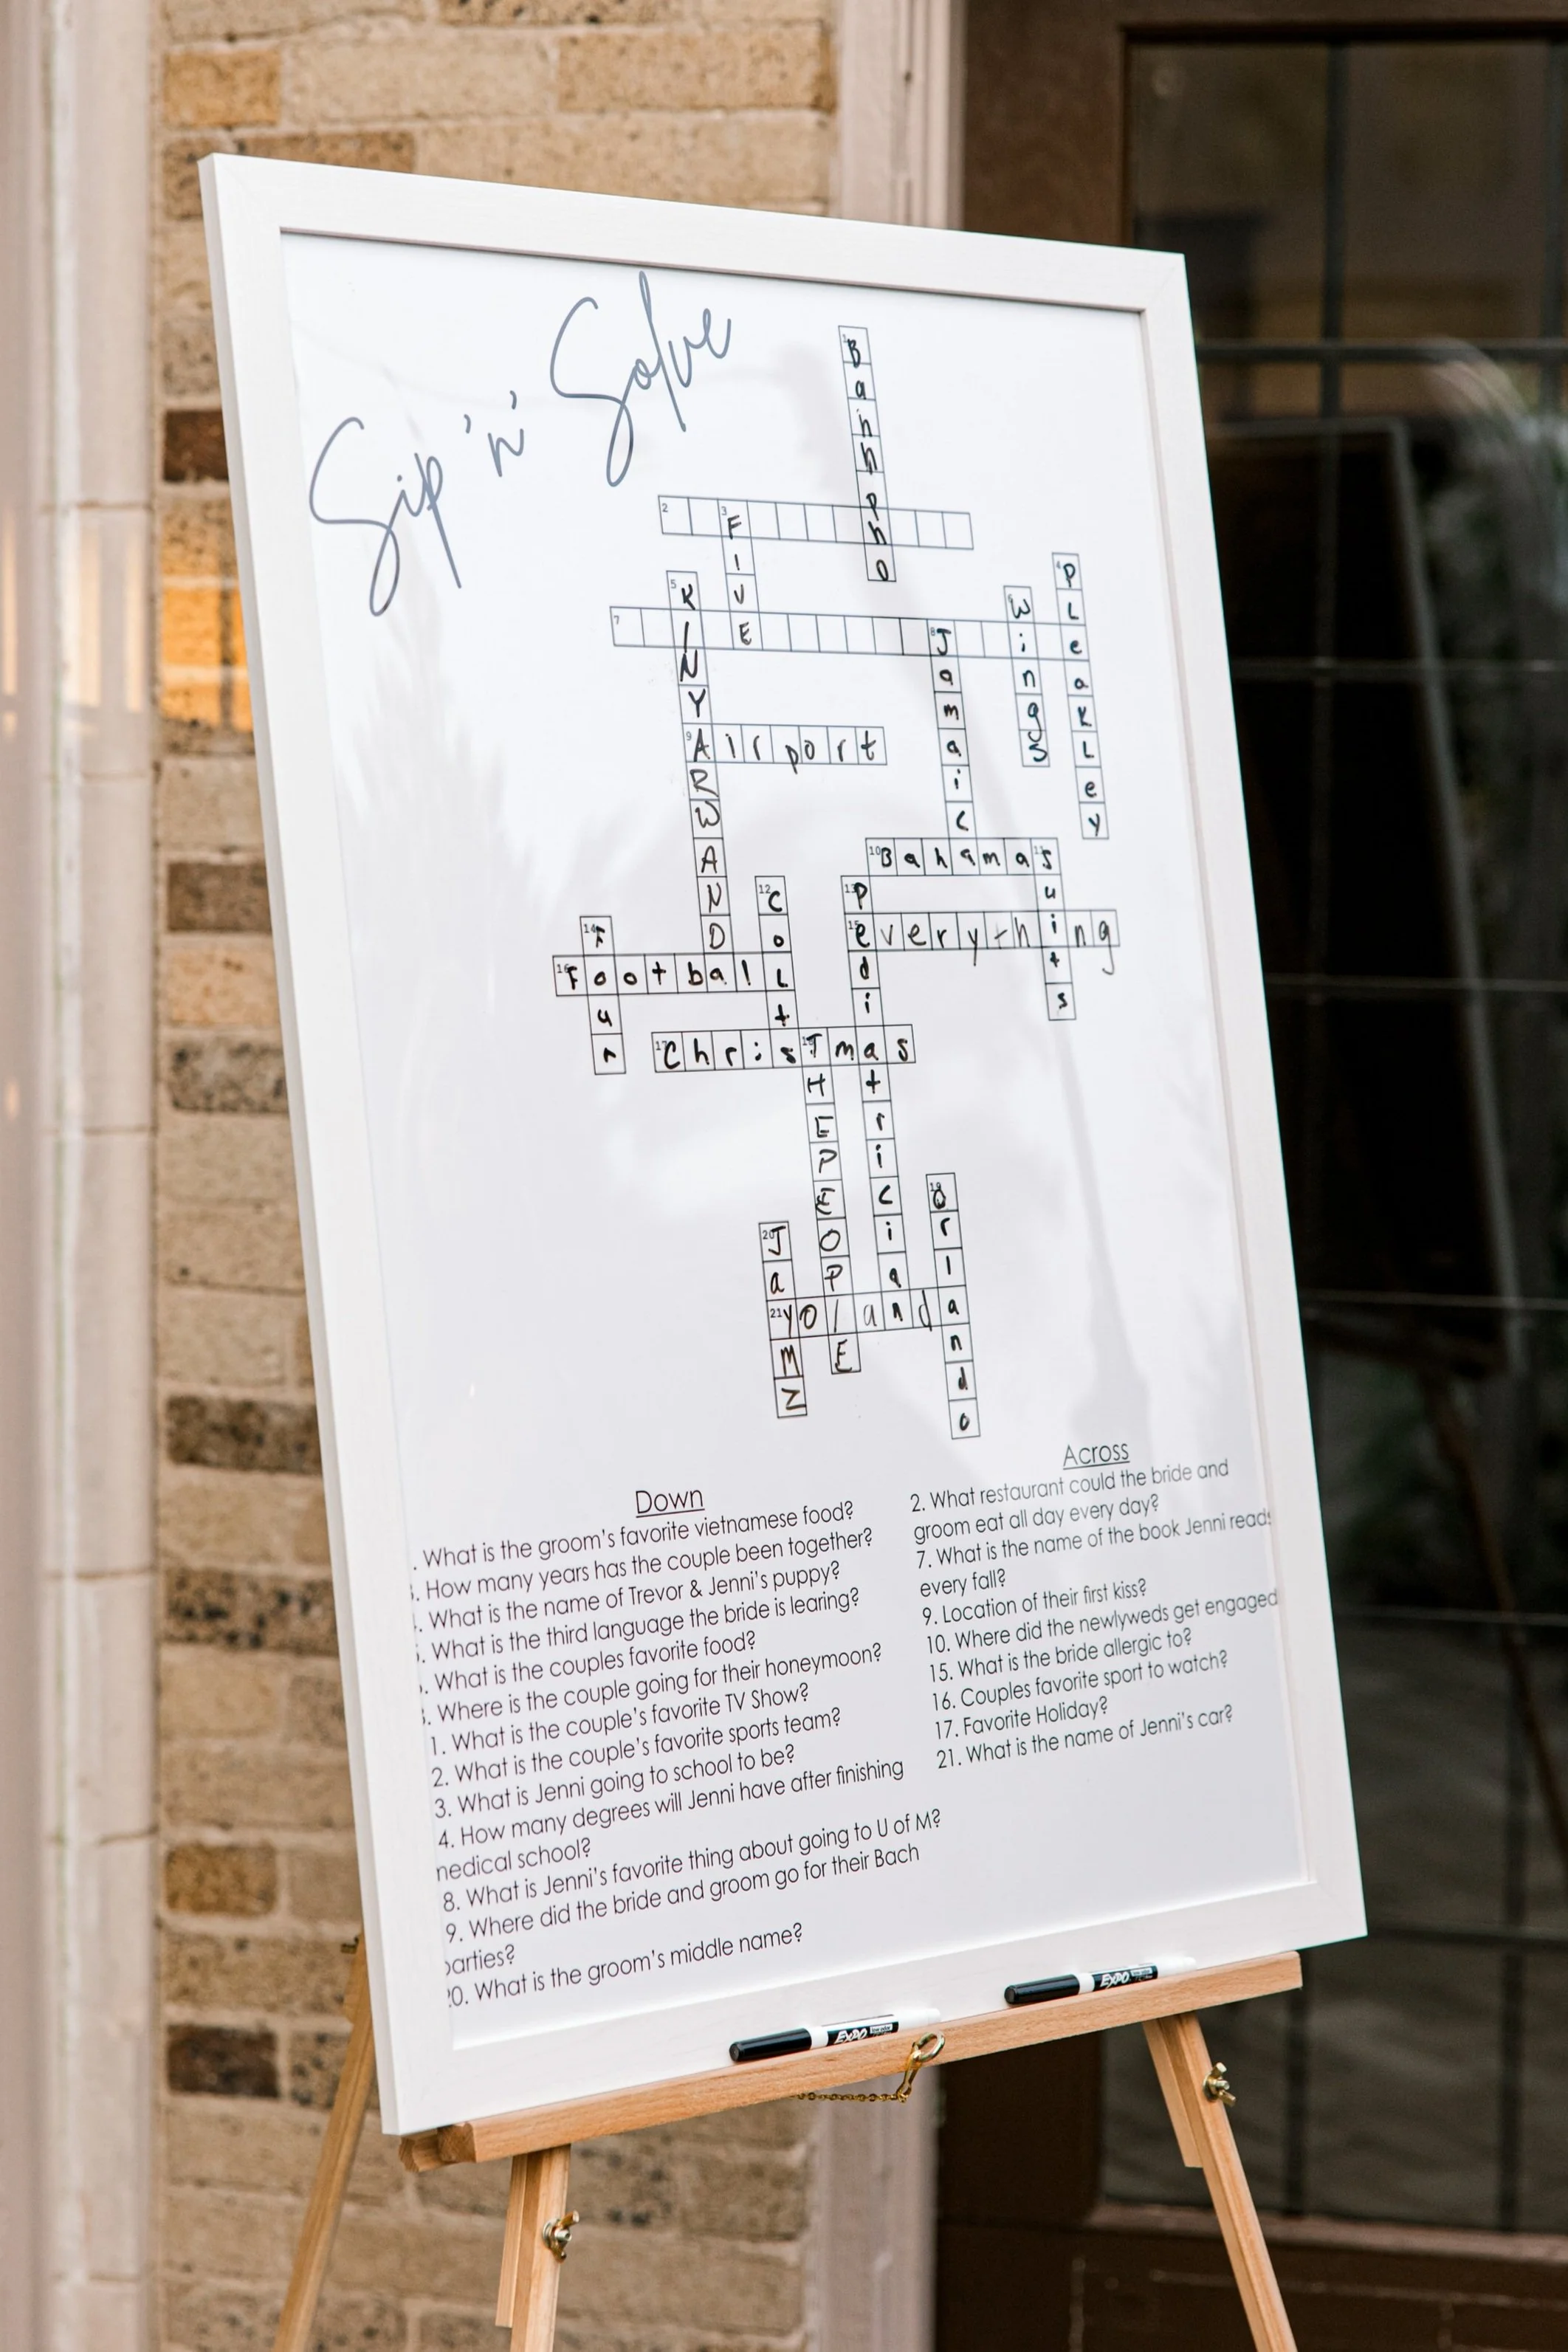 Sip 'n' Solve
1
Bahhpho
2
3
FIVE
4
PLeaKLey
5
KINYARWANDA
6
Wings
7
8
Jamaica
9
Airport
10
Bahamas
11
Suits
12
CoLts
13
Pediatrician
14
Four
15
everything
16
Football
17
Christmas
18
THEPEOPlE
19
Orlando
20
JayMZ
21
yolanda
Down
. What is the groom's favorite vietnamese food?
. How many years has the couple been together?
. What is the name of Trevor & Jenni's puppy?
. What is the third language the bride is learing?
. What is the couples favorite food?
. Where is the couple going for their honeymoon?
1. What is the couple's favorite TV Show?
2. What is the couple's favorite sports team?
3. What is Jenni going to school to be?
4. How many degrees will Jenni have after finishing
medical school?
8. What is Jenni's favorite thing about going to U of M?
9. Where did the bride and groom go for their Bach
parties?
20. What is the groom's middle name?
Across
2. What restaurant could the bride and
groom eat all day every day?
7. What is the name of the book Jenni reads
every fall?
9. Location of their first kiss?
10. Where did the newlyweds get engaged
15. What is the bride allergic to?
16. Couples favorite sport to watch?
17. Favorite Holiday?
21. What is the name of Jenni's car?
EXPO
EXPO